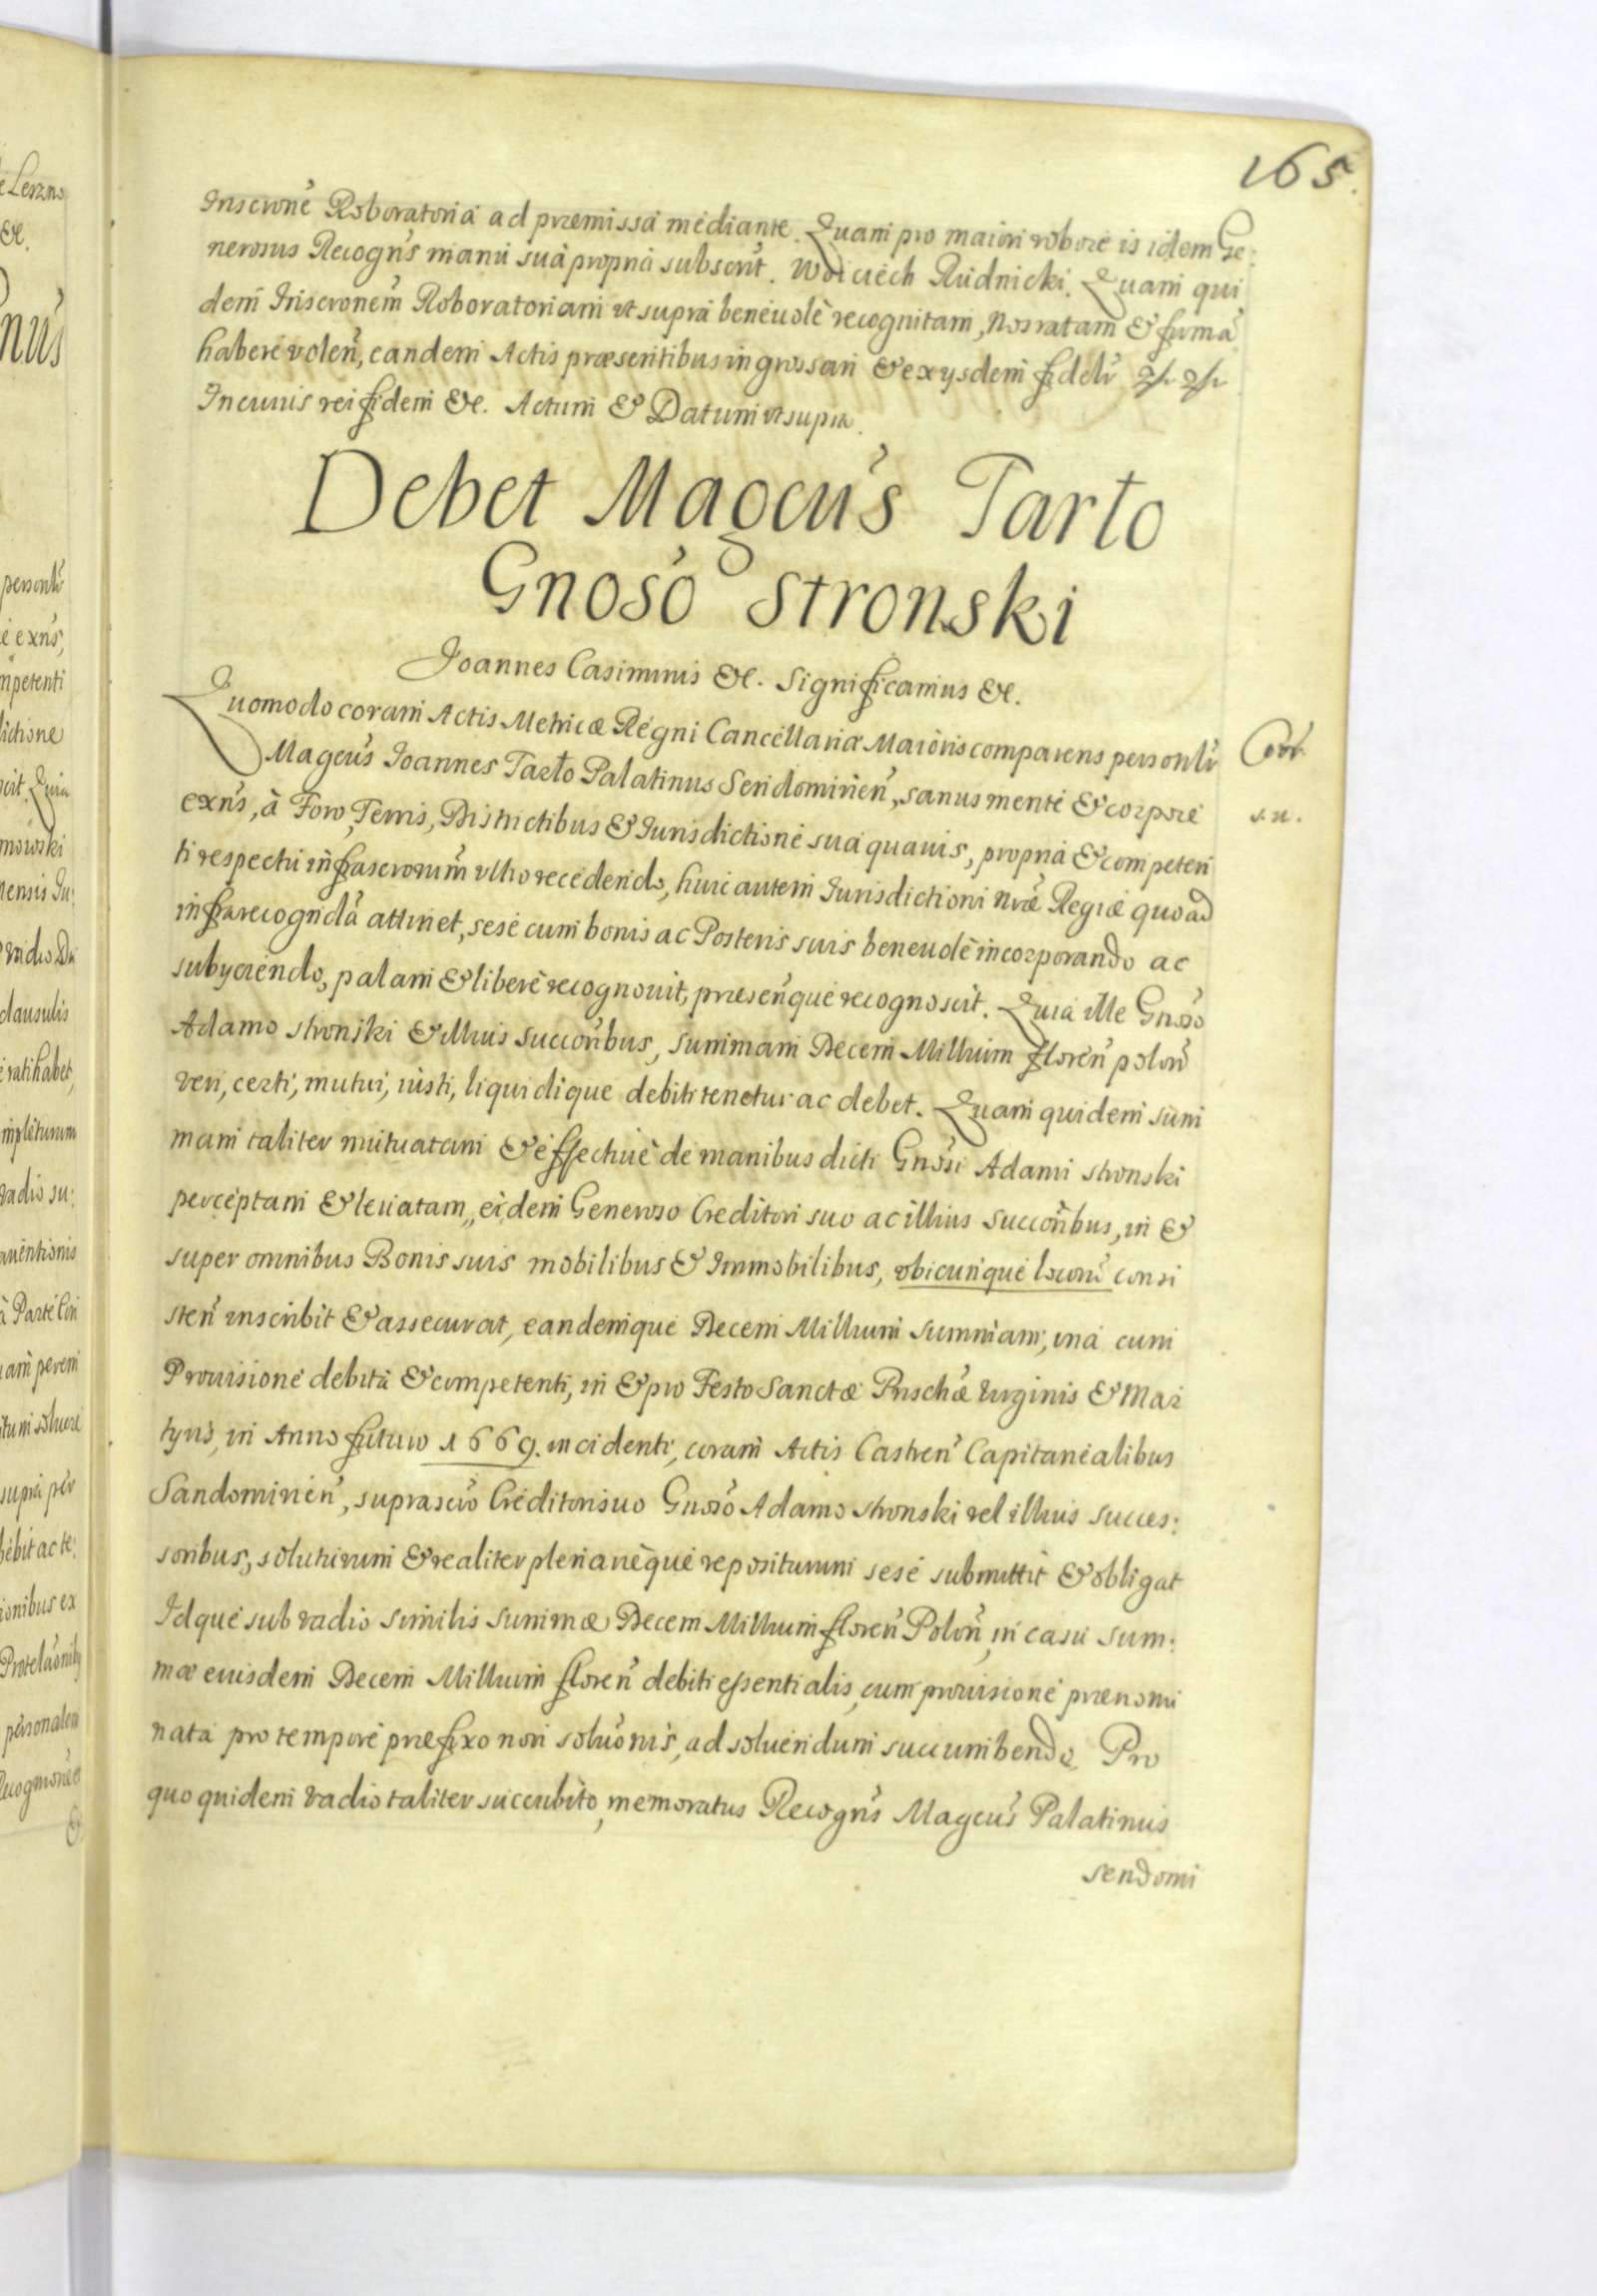 165.
Inscrone Roboratoria ad præmissa mediante. Quam pro maiori robore is idem Ge:
nerosus Recogns manu sua propria subscrit. Woiciech Rudnicki. Quam qui
dem Inscronem Roboratoriam ut supra beneuolè recognitam, Nos ratam & firmã
habere volen, eandem Actis præsentibus ingrossari & exysdem fidelr
In cuius rei fidem &c. Actum & Datum ut supra.
Debet Magcus Tarło
Gnoso Stronski
Joannes Casimirus &c. Significamus &c.
Quomodo coram Actis Metricæ Regni Cancellariæ Maioris comparens personlr
Magcus Joannes Tarło Palatinus Sendomirien, sanus mente & corpore
exns, à Foro, Terris, Districtibus & Jurisdictione sua quauis, propria & competen
ti respectu infrascrorum vltro recedendo, huic autem Jurisdictioni nræ Regiæ quoad
infrarecognda attinet, sese cum bonis ac Posteris suis beneuolè incorporando ac
subyciendo, palam & liberè recognouit, præsenque recognoscit. Quia ille Gnoso
Adamo Stronski & illius succoribus, summam Decem Millium floren polon
veri, certi, mutui, iusti, liquidique debiti tenetur ac debet. Quam quidem sum
mam taliter mutuatam & effectiuè de manibus dicti Gnosi Adami Stronski
perceptam & leuatam, eidem Generoso Creditori suo ac illius succoribus, in &
super omnibus Bonis suis mobilibus & Immobilibus, vbicunque locorũ consi
sten inscribit & assecurat, eandemque Decem Millium Summam, vna cum
Prouisione debita & competenti, in & pro Festo Sanctæ Prischæ Virginis & Mar
tyris, in Anno futuro 1669. incidenti, coram Actis Castren Capitanealibus
Sandomirien, suprascro Creditori suo Gnoso Adamo Stronski vel illius succes:
soribus, soluturum & realiter plenarieque repositurum sese submittit & obligat
Idque sub vadio similis summæ Decem Millium floren Polon, in casu sum:
mæ eiusdem Decem Millium floren debiti essentialis, cum prouisione prænomi
nata pro tempore præfixo non soluonis, ad soluendum succumbendo. Pro
quo quidem vadio taliter succubito, memoratus Recogns Magcus Palatinus
Sendomi